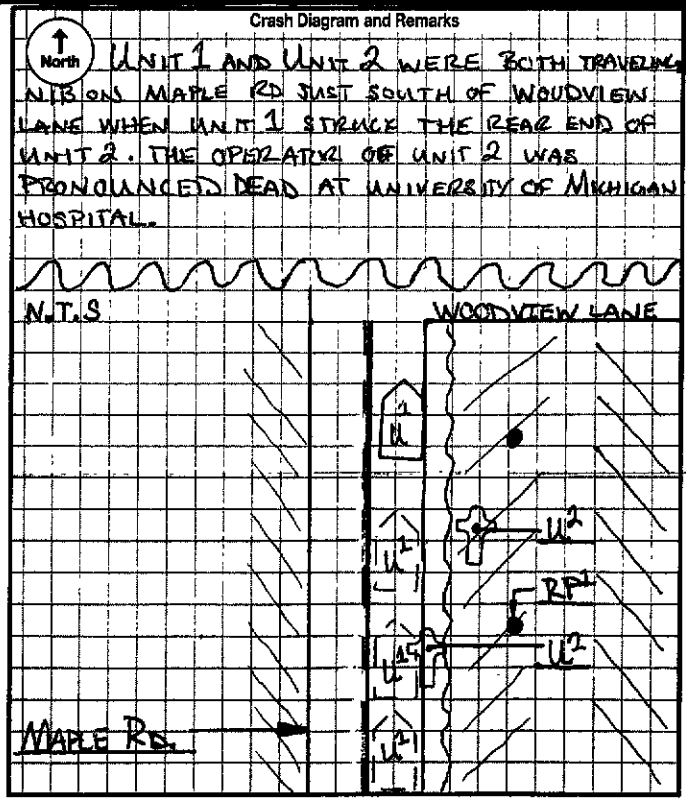 Crash Diagram and Remarks
North
UNIT 1 AND UNIT 2 WERE BOTH TRAVELING
N/B ON MAPLE RD JUST SOUTH OF WOUDVIEW
LANE WHEN UNIT 1 STRUCK THE REAR END OF
UNIT 2. THE OPERATOR OF UNIT 2 WAS
PRONOUNCED DEAD AT UNIVERSITY OF MICHIGAN
HOSPITAL.
N.T.S
WOODVIEW LANE
U1
U2
U1
RP1
U1
U2
MAPLE RD.
U1